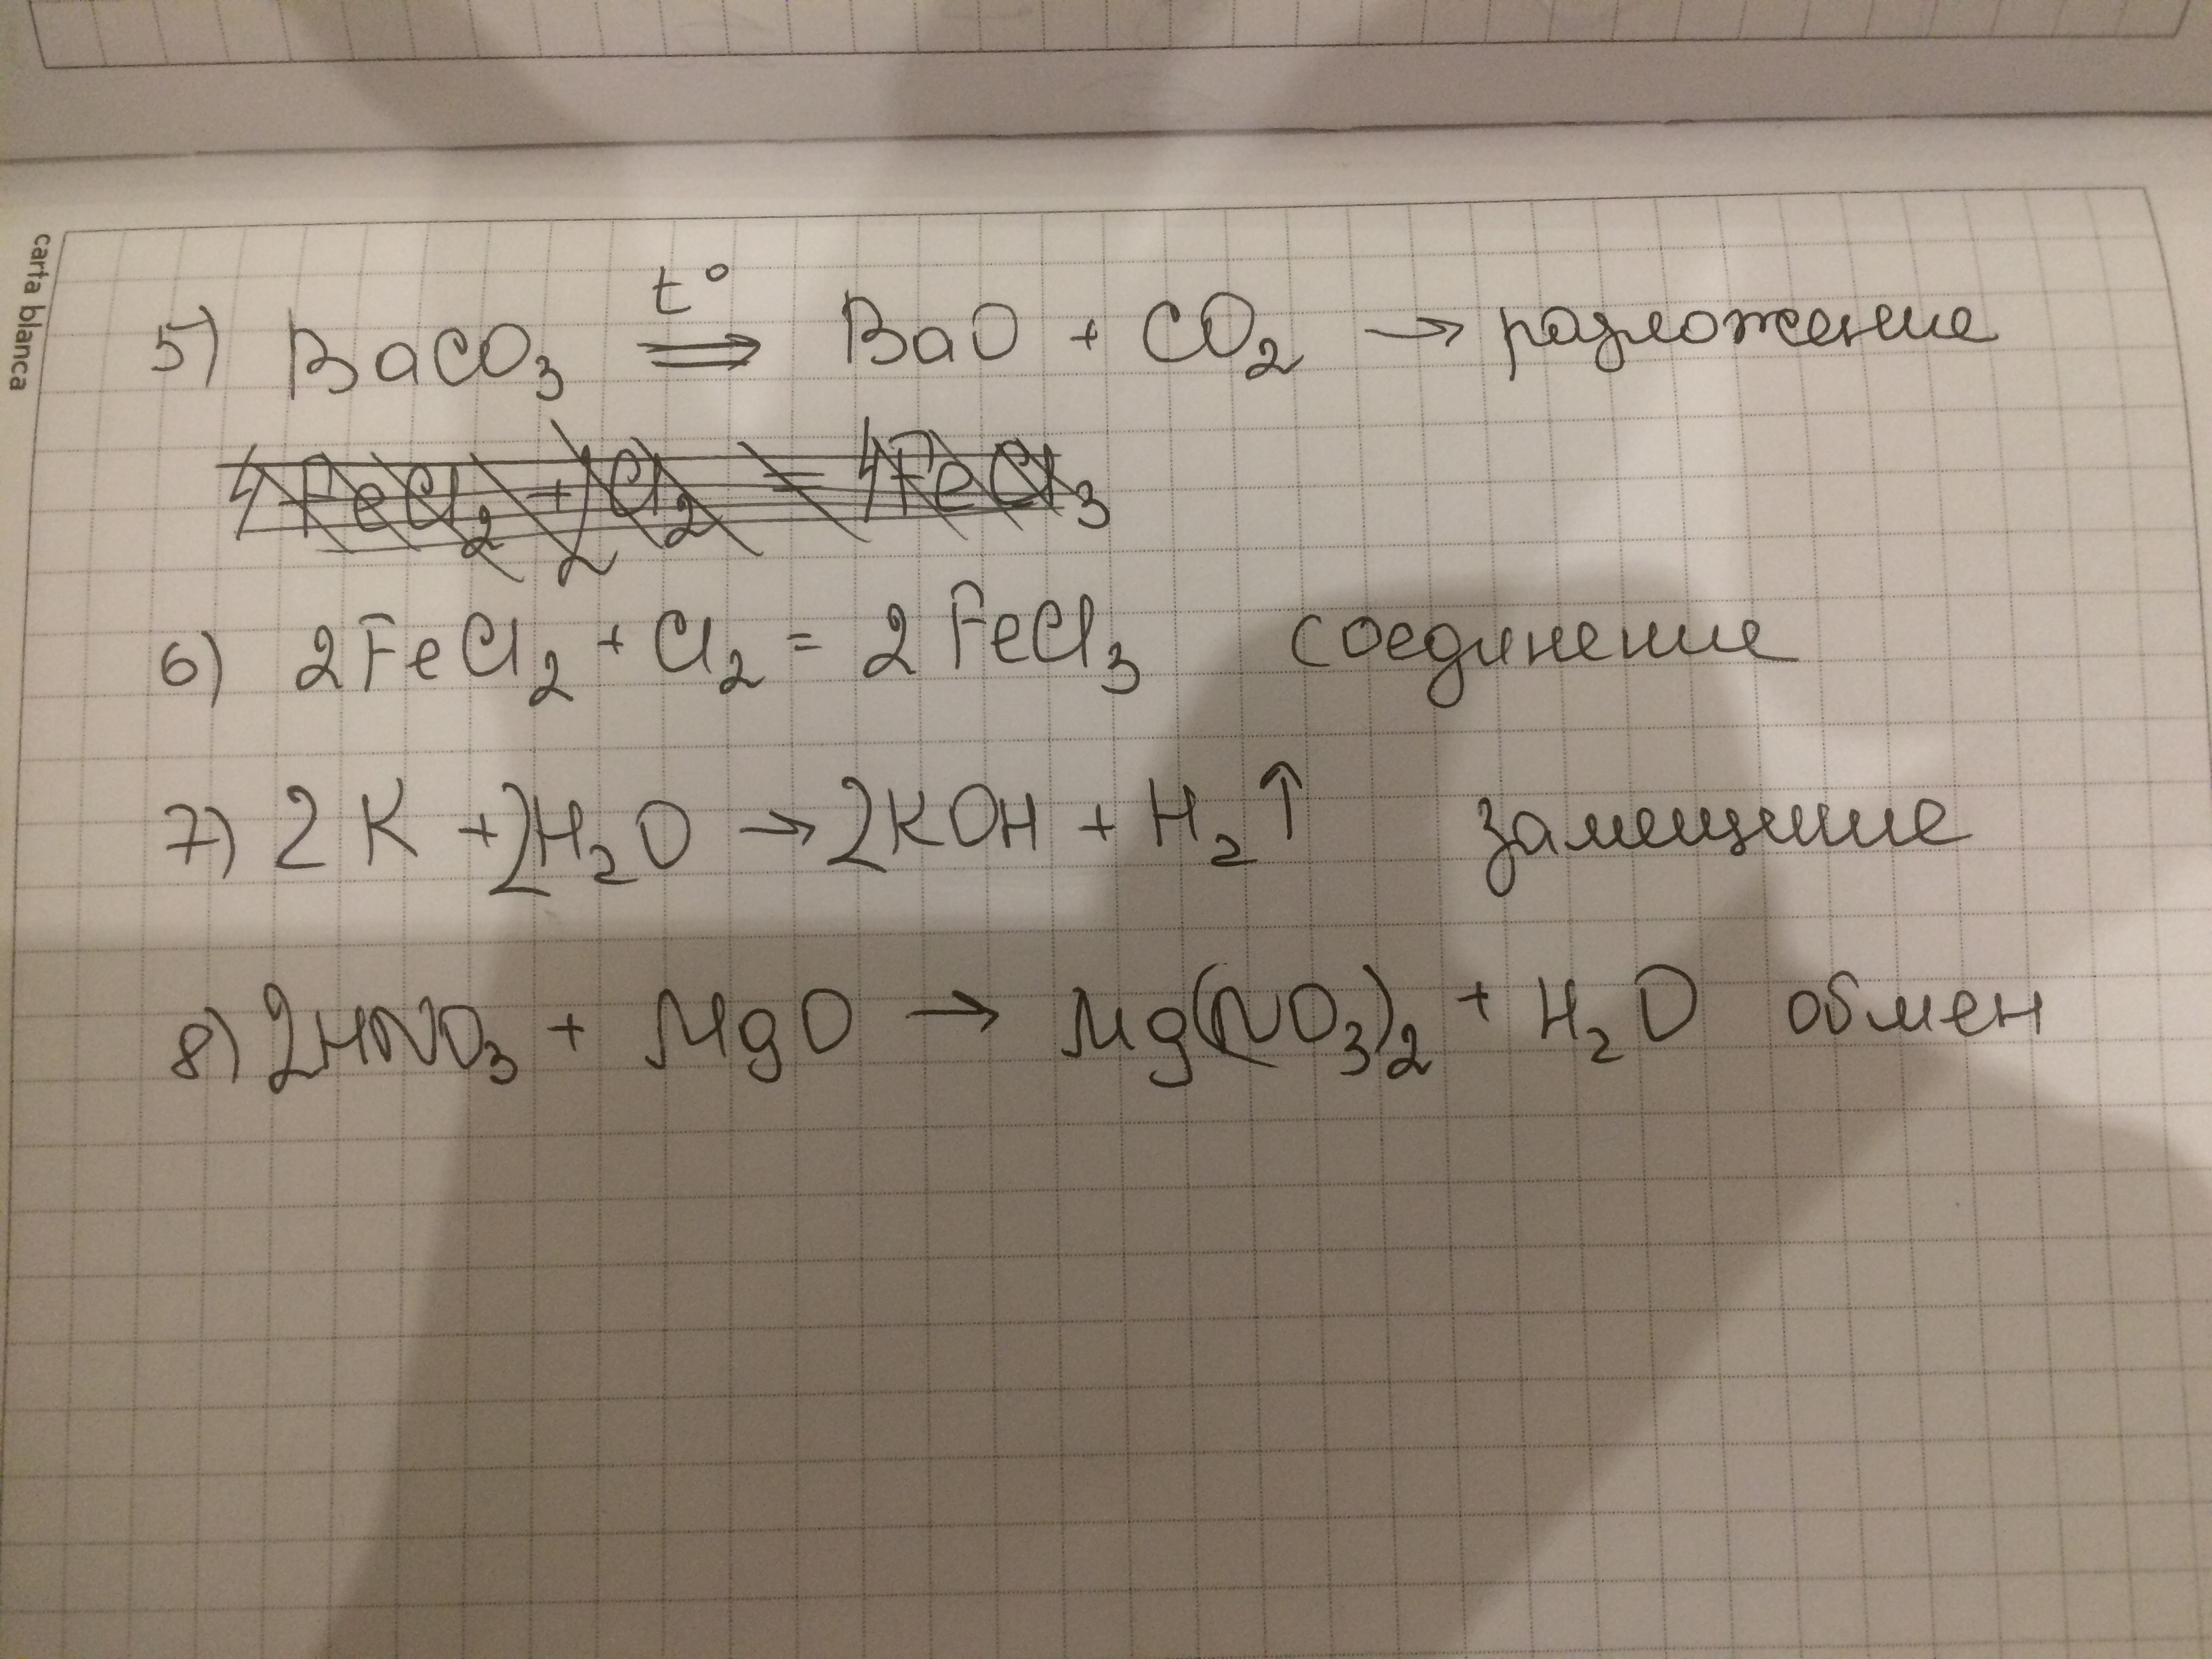 carta blanca
5) BaCO₃ t° ⇒ BaO + CO₂ → разложение
4FeCl₂ + 2Cl₂ = 4FeCl₃
6) 2FeCl₂ + Cl₂ = 2FeCl₃ соединение
7) 2K + 2H₂O → 2KOH + H₂↑ замещение
8) 2HNO₃ + MgO → Mg(NO₃)₂ + H₂O обмен